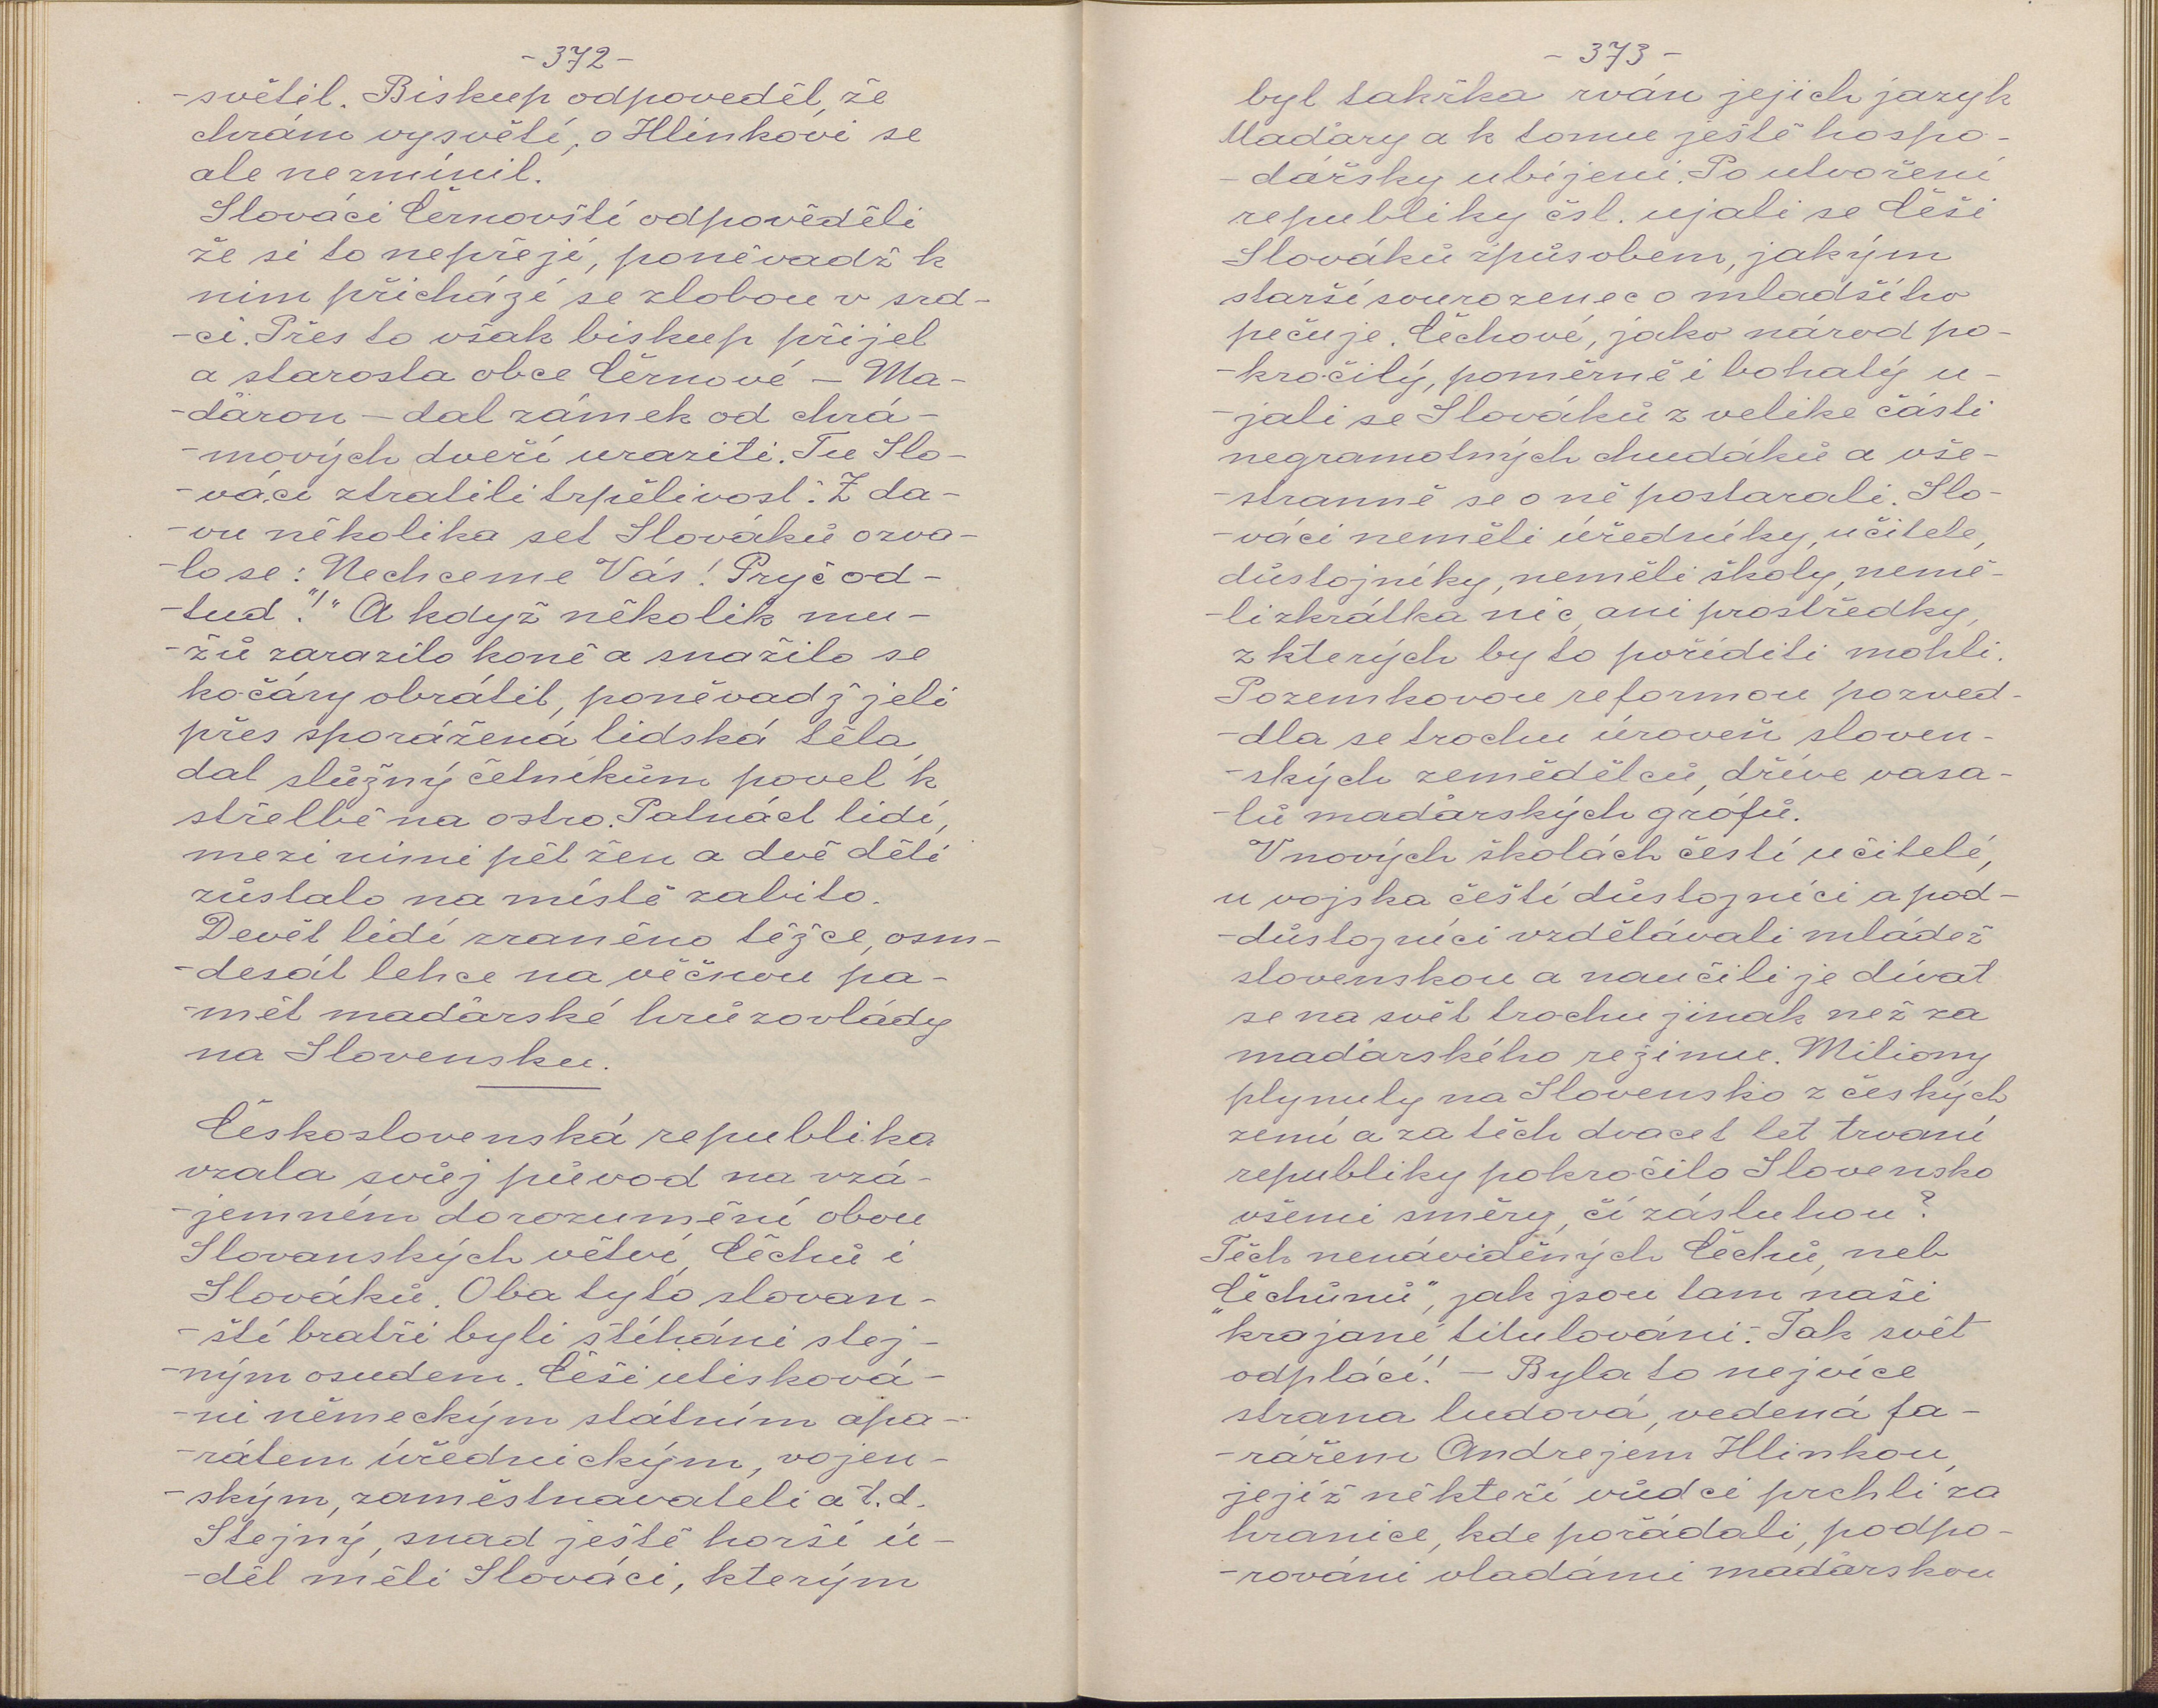 -372-
-světil. Biskup odpověděl, že
chrám vysvětí, o Hlinkovi se
ale nezmínil.
Slováci Černovští odpověděli
že si to nepřejí, poněvadž k
nim přichází se zlobou v srd-
-ci. Přes to však biskup přijel
a starosta obce Černové - Ma-
-ďaron - dal zámek od chrá-
-mových dveří uraziti. Tu Slo-
-váci ztratili trpělivost. Z da-
-vu několika set Slováků ozva-
-lo se: Nechceme Vás! Pryč od-
-tud"!" A když několik mu-
-žů zarazilo koně a snažilo se
kočáry obrátit, poněvadž jeli
přes sporážená lidská těla,
dal slúžný četníkům povel k
střelbě na ostro. Patnáct lidí,
mezi nimi pět žen a dvě děti
zůstalo na místě zabito.
Devět lidí zraněno těžce, osm-
-desát lehce na věčnou pa-
-měť maďarské hrůzovlády
na Slovensku.
Československá republika
vzala svůj původ na vzá-
-jemném dorozumění obou
Slovanských větví, Čechů i
Slováků. Oba tyto slovan-
-ští bratři byli stíháni stej-
-ným osudem. Češi utisková-
-ni německým státním apa-
-rátem úřednickým, vojen-
-ským, zaměstnavateli a t.d.
Stejný, snad ještě horší ú-
-děl měli Slováci, kterým
-373-
byl takřka rván jejich jazyk
Maďary a k tomu ještě hospo-
-dářsky ubíjeni. Po utvoření
republiky čsl. ujali se Češi
Slováků způsobem, jakým
starší sourozenec o mladšího
pečuje. Čechové, jako národ po-
-kročilý, poměrně i bohatý u-
-jali se Slováků z velike části
negramotných chudáků a vše-
-stranně se o ně postarali. Slo-
-váci neměli úředníky, učitele,
důstojníky, neměli školy, nemě-
-li zkrátka nic, ani prostředky,
z kterých by to poříditi mohli.
Pozemkovou reformou pozved-
-dla se trochu úroveň sloven-
-ských zemědělců, dříve vasa-
-lů maďarských grófů.
V nových školách čestí učitelé,
u vojska čeští důstojníci a pod-
-důstojníci vzdělávali mládež
slovenskou a naučili je dívat
se na svět trochu jinak než za
maďarského režimu. Miliony
plynuly na Slovensko z českých
zemí a za těch dvacet let trvaní
republiky pokročilo Slovensko
všemi směry, čí zásluhou?
Těch nenáviděných Čechů, neb
„Čechúnů", jak jsou tam naši
krajané titulováni. Tak svět
odplácí! - Byla to nejvíce
strana ludová, vedená fa-
-rářem Andrejem Hlinkou,
jejíž někteří vůdci prchli za
hranice, kde pořádali, podpo-
-rováni vladámi maďarskou